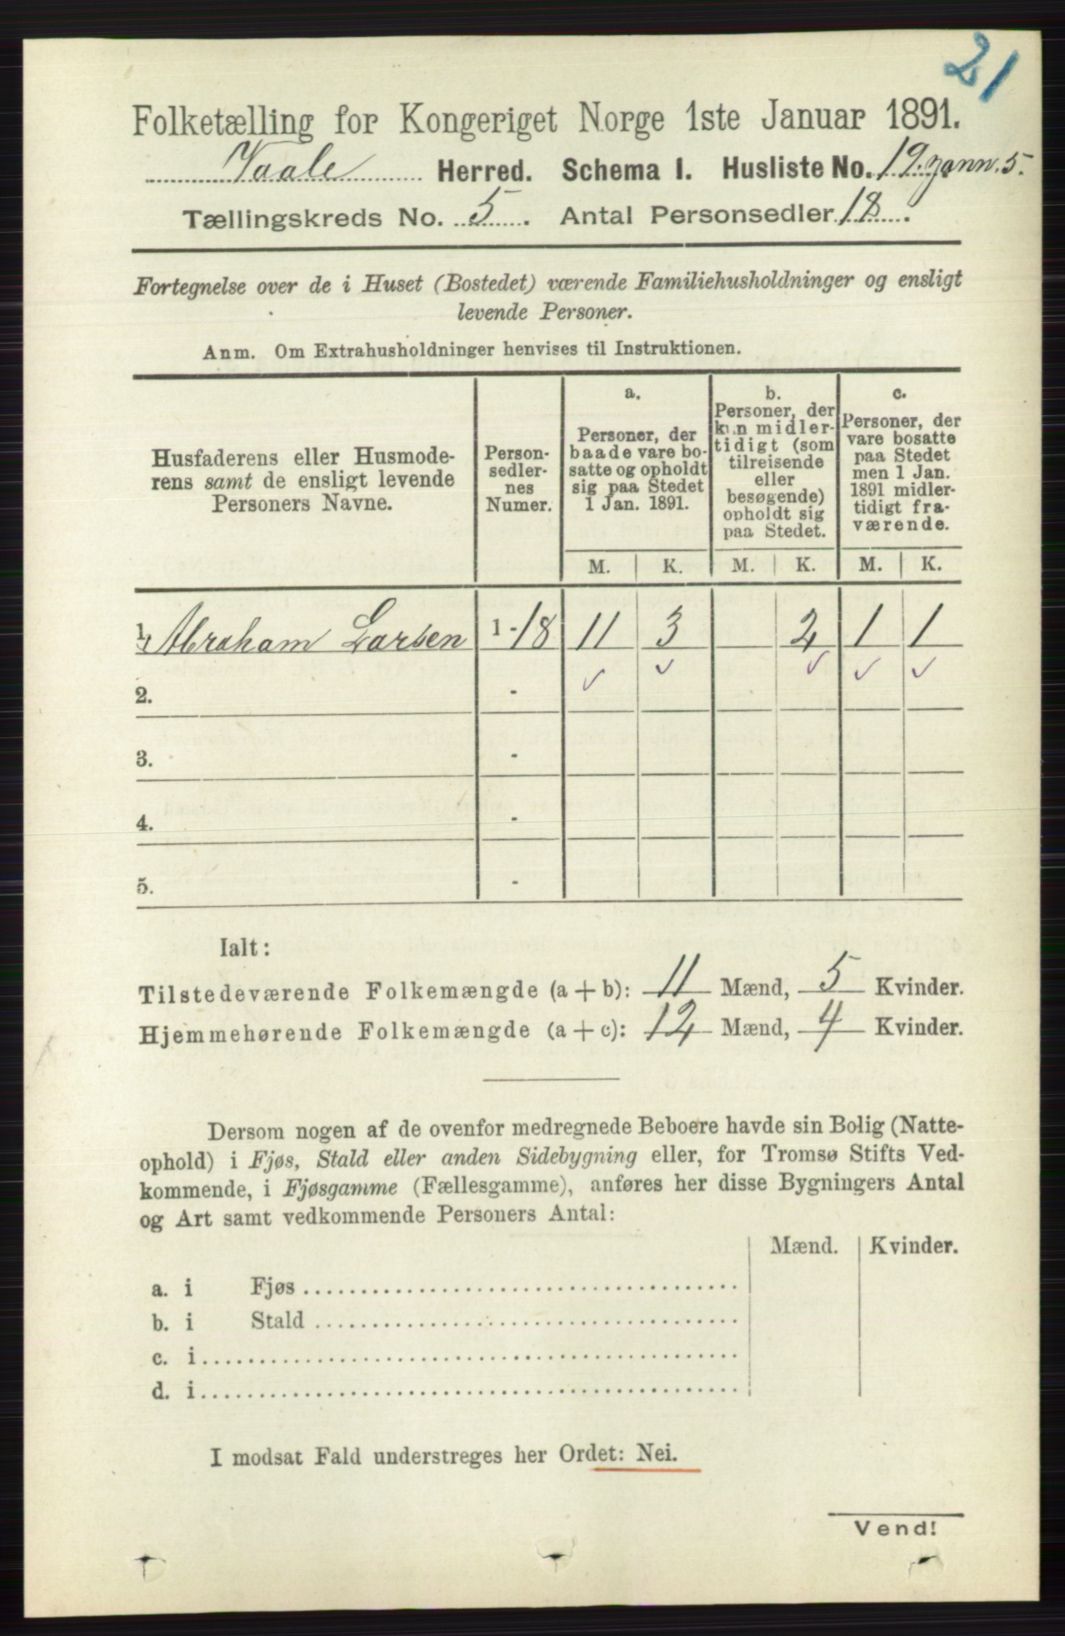 21
Folketælling for Kongeriget Norge 1ste Januar 1891.
Vaale Herred. Schema I. Husliste No. 19.
Tællingskreds No. 5. Antal Personsedler 18.
Fortegnelse over de i Huset (Bostedet) værende Familiehusholdninger og ensligt
levende Personer.
Anm. Om Extrahusholdninger henvises til Instruktionen.
Husfaderens eller Husmode-
rens samt de ensligt levende
Personers Navne.
Person-
sedler-
nes
Numer.
a.
Personer, der
baade vare bo-
satte og opholdt
sig paa Stedet
1 Jan. 1891.
b.
Personer, der
kun midler-
tidigt (som
tilreisende
eller
besøgende)
opholdt sig
paa Stedet.
c.
Personer, der
vare bosatte
paa Stedet
men 1 Jan.
1891 midler-
tidigt fra-
værende.
M. K. M. K. M. K.
1. Abraham Larsen 1-18 11 3 2 1 1
2. -
3. -
4. -
5. -
Ialt:
Tilstedeværende Folkemængde (a + b): 11 Mænd, 5 Kvinder.
Hjemmehørende Folkemængde (a + c): 12 Mænd, 4 Kvinder.
Dersom nogen af de ovenfor medregnede Beboere havde sin Bolig (Natte-
ophold) i Fjøs, Stald eller anden Sidebygning eller, for Tromsø Stifts Ved-
kommende, i Fjøsgamme (Fællesgamme), anføres her disse Bygningers Antal
og Art samt vedkommende Personers Antal:
Mænd. Kvinder.
a. i Fjøs
b. i Stald
c. i
d. i
I modsat Fald understreges her Ordet: Nei.
Vend!